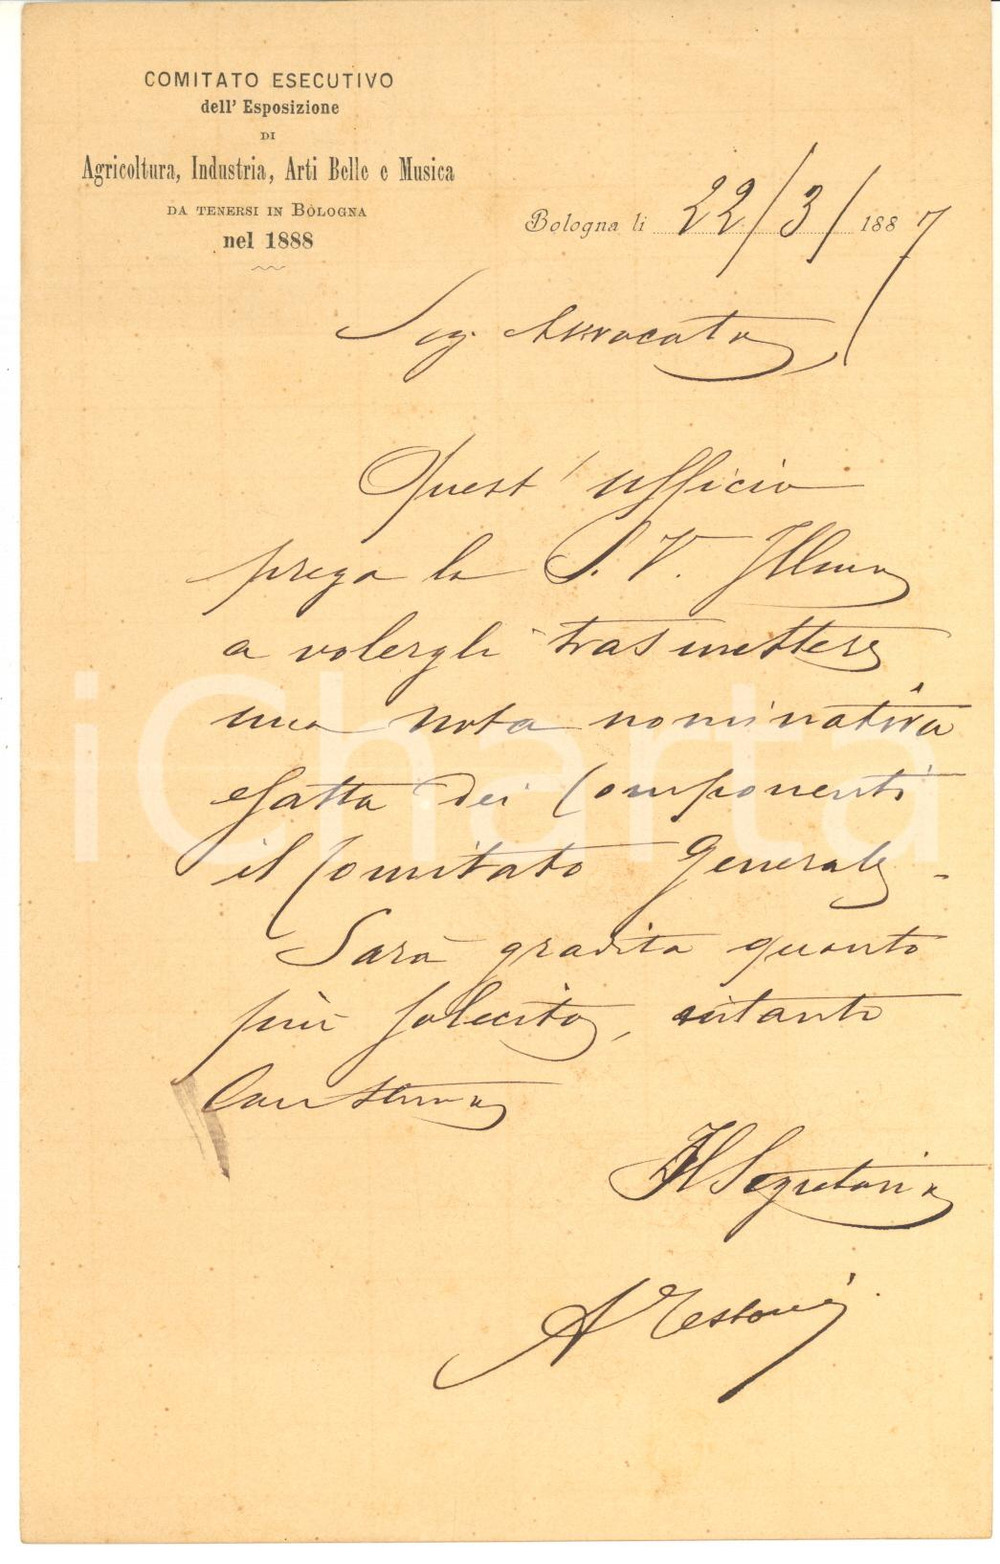 COMITATO ESECUTIVO
dell' Esposizione
DI
Agricoltura, Industria, Arti Belle e Musica
DA TENERSI IN BOLOGNA
nel 1888
Bologna li 22/3/1887
Sig. Avvocato
Quest' ufficio
prega la S. V. Illma
a volergli trasmettere
una nota nominativa
esatta dei Componenti
il Comitato Generale -
Sarà gradita quanto
più sollecita, intanto
Con stima
Il Segretario
A Testoni
iCharta